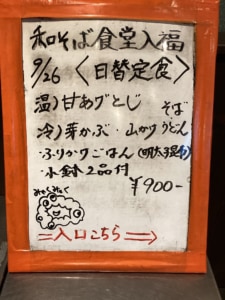 和そば食堂入福
9/26 〈日替定食〉
温)甘あげとじ そば
冷)芽かぶ・山かけ うどん
・ふりかけごはん(明太子)
・小鉢2品付
¥900-
みゃくみゃく
=入口こちら⇒